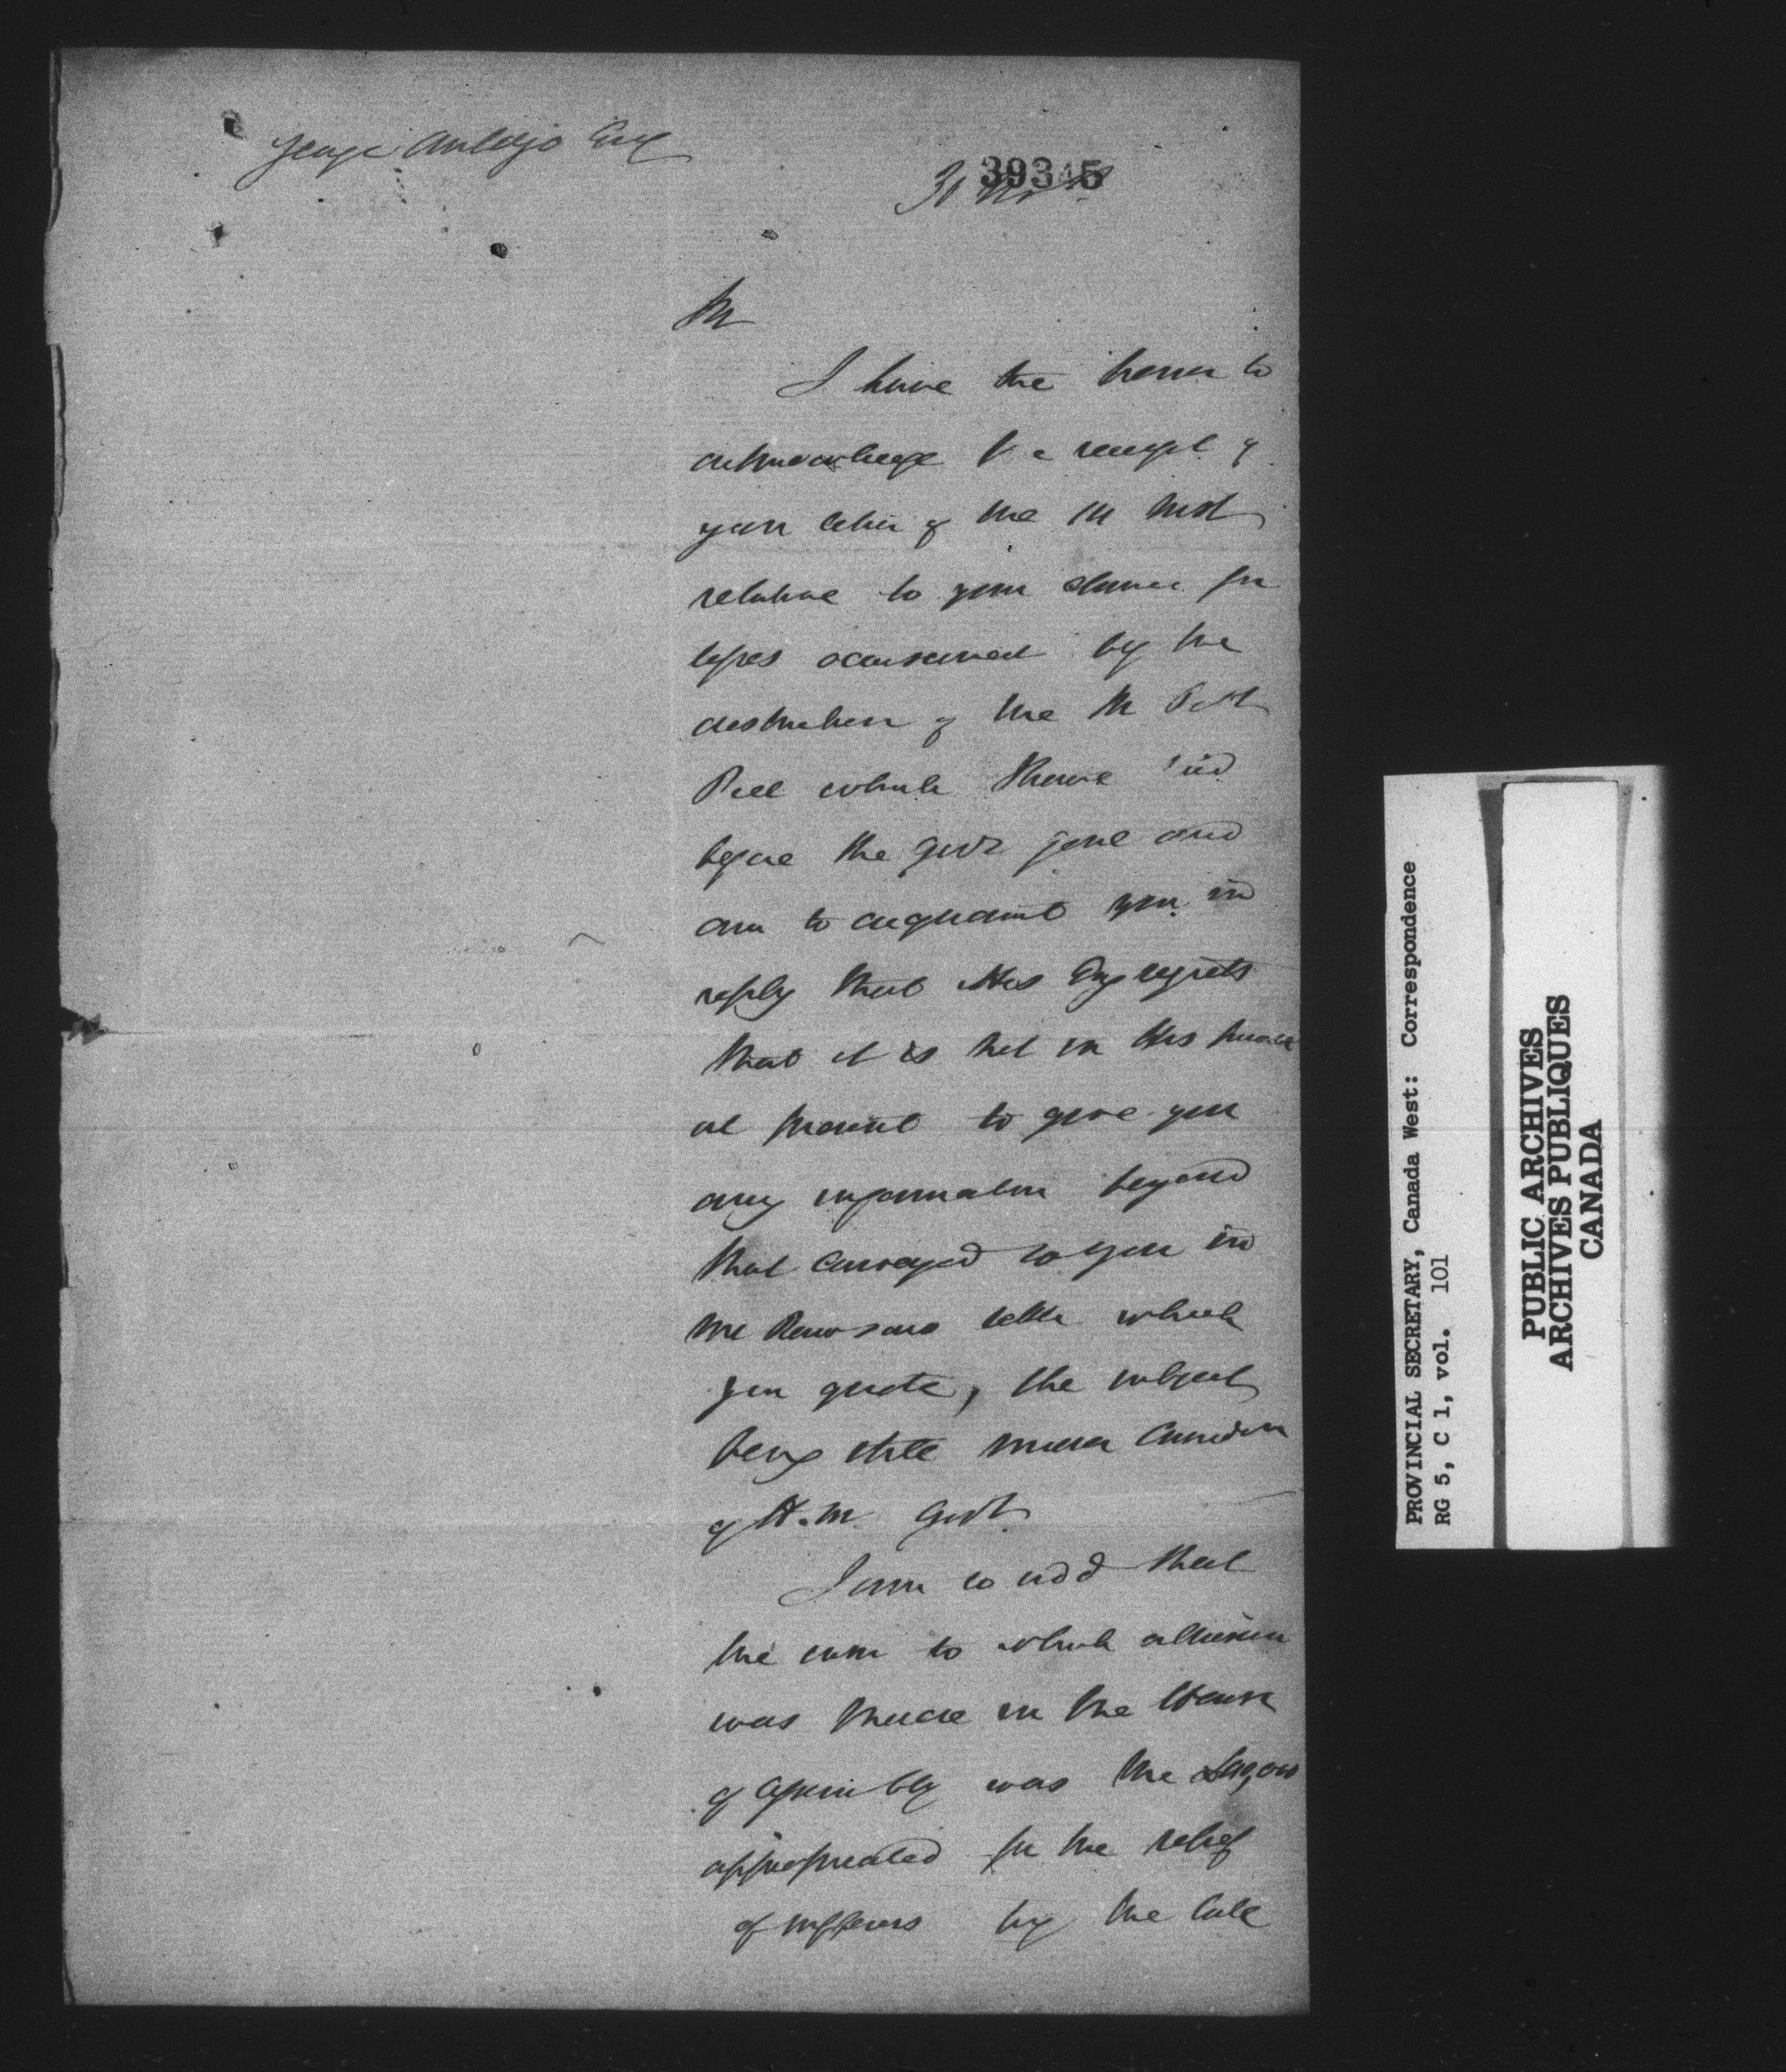 George Auldjo Esq
39345
31
Sir
I have the honor to
acknowledge the receipt of
your letter of the inst
relative to your claim for
losses occasioned by the
destruction of the Sir Robt
Peel which I have laid
before the Govr Genl and
am to acquaint you in
reply that His Exy regrets
that it is not in His power
at present to give you
any information beyond
that conveyed to you in
Mr Rawsons letter which
you quote, the subject
being still under Considn
of H.M. Govt
I am to add that
the sum to which allusion
was made in the House
of Assembly was the
appropriated for the relief
of sufferers by the late
PROVINCIAL SECRETARY, Canada West: Correspondence
RG 5, C 1, vol. 101
PUBLIC ARCHIVES
ARCHIVES PUBLIQUES
CANADA